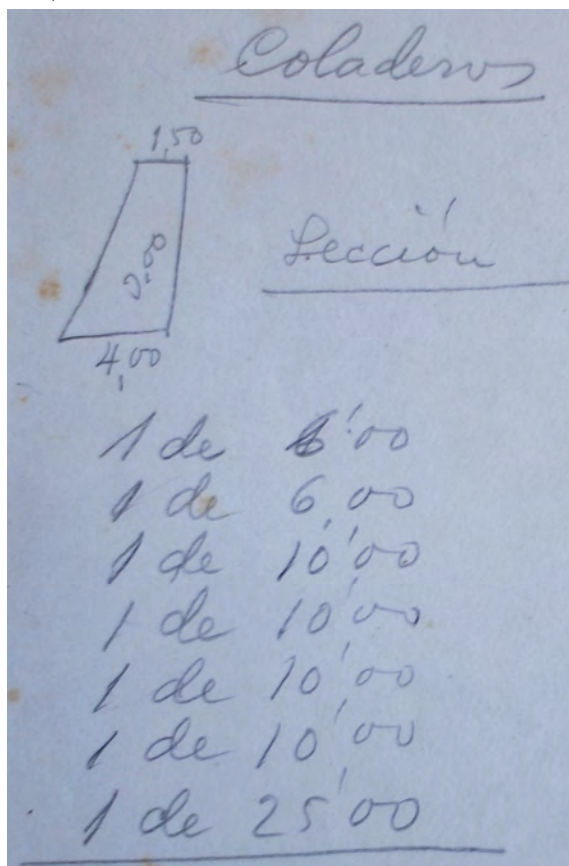 Coladeros
1,50
Sección
4,00
1 de 6'00
1 de 6,00
1 de 10'00
1 de 10'00
1 de 10'00
1 de 10'00
1 de 25'00